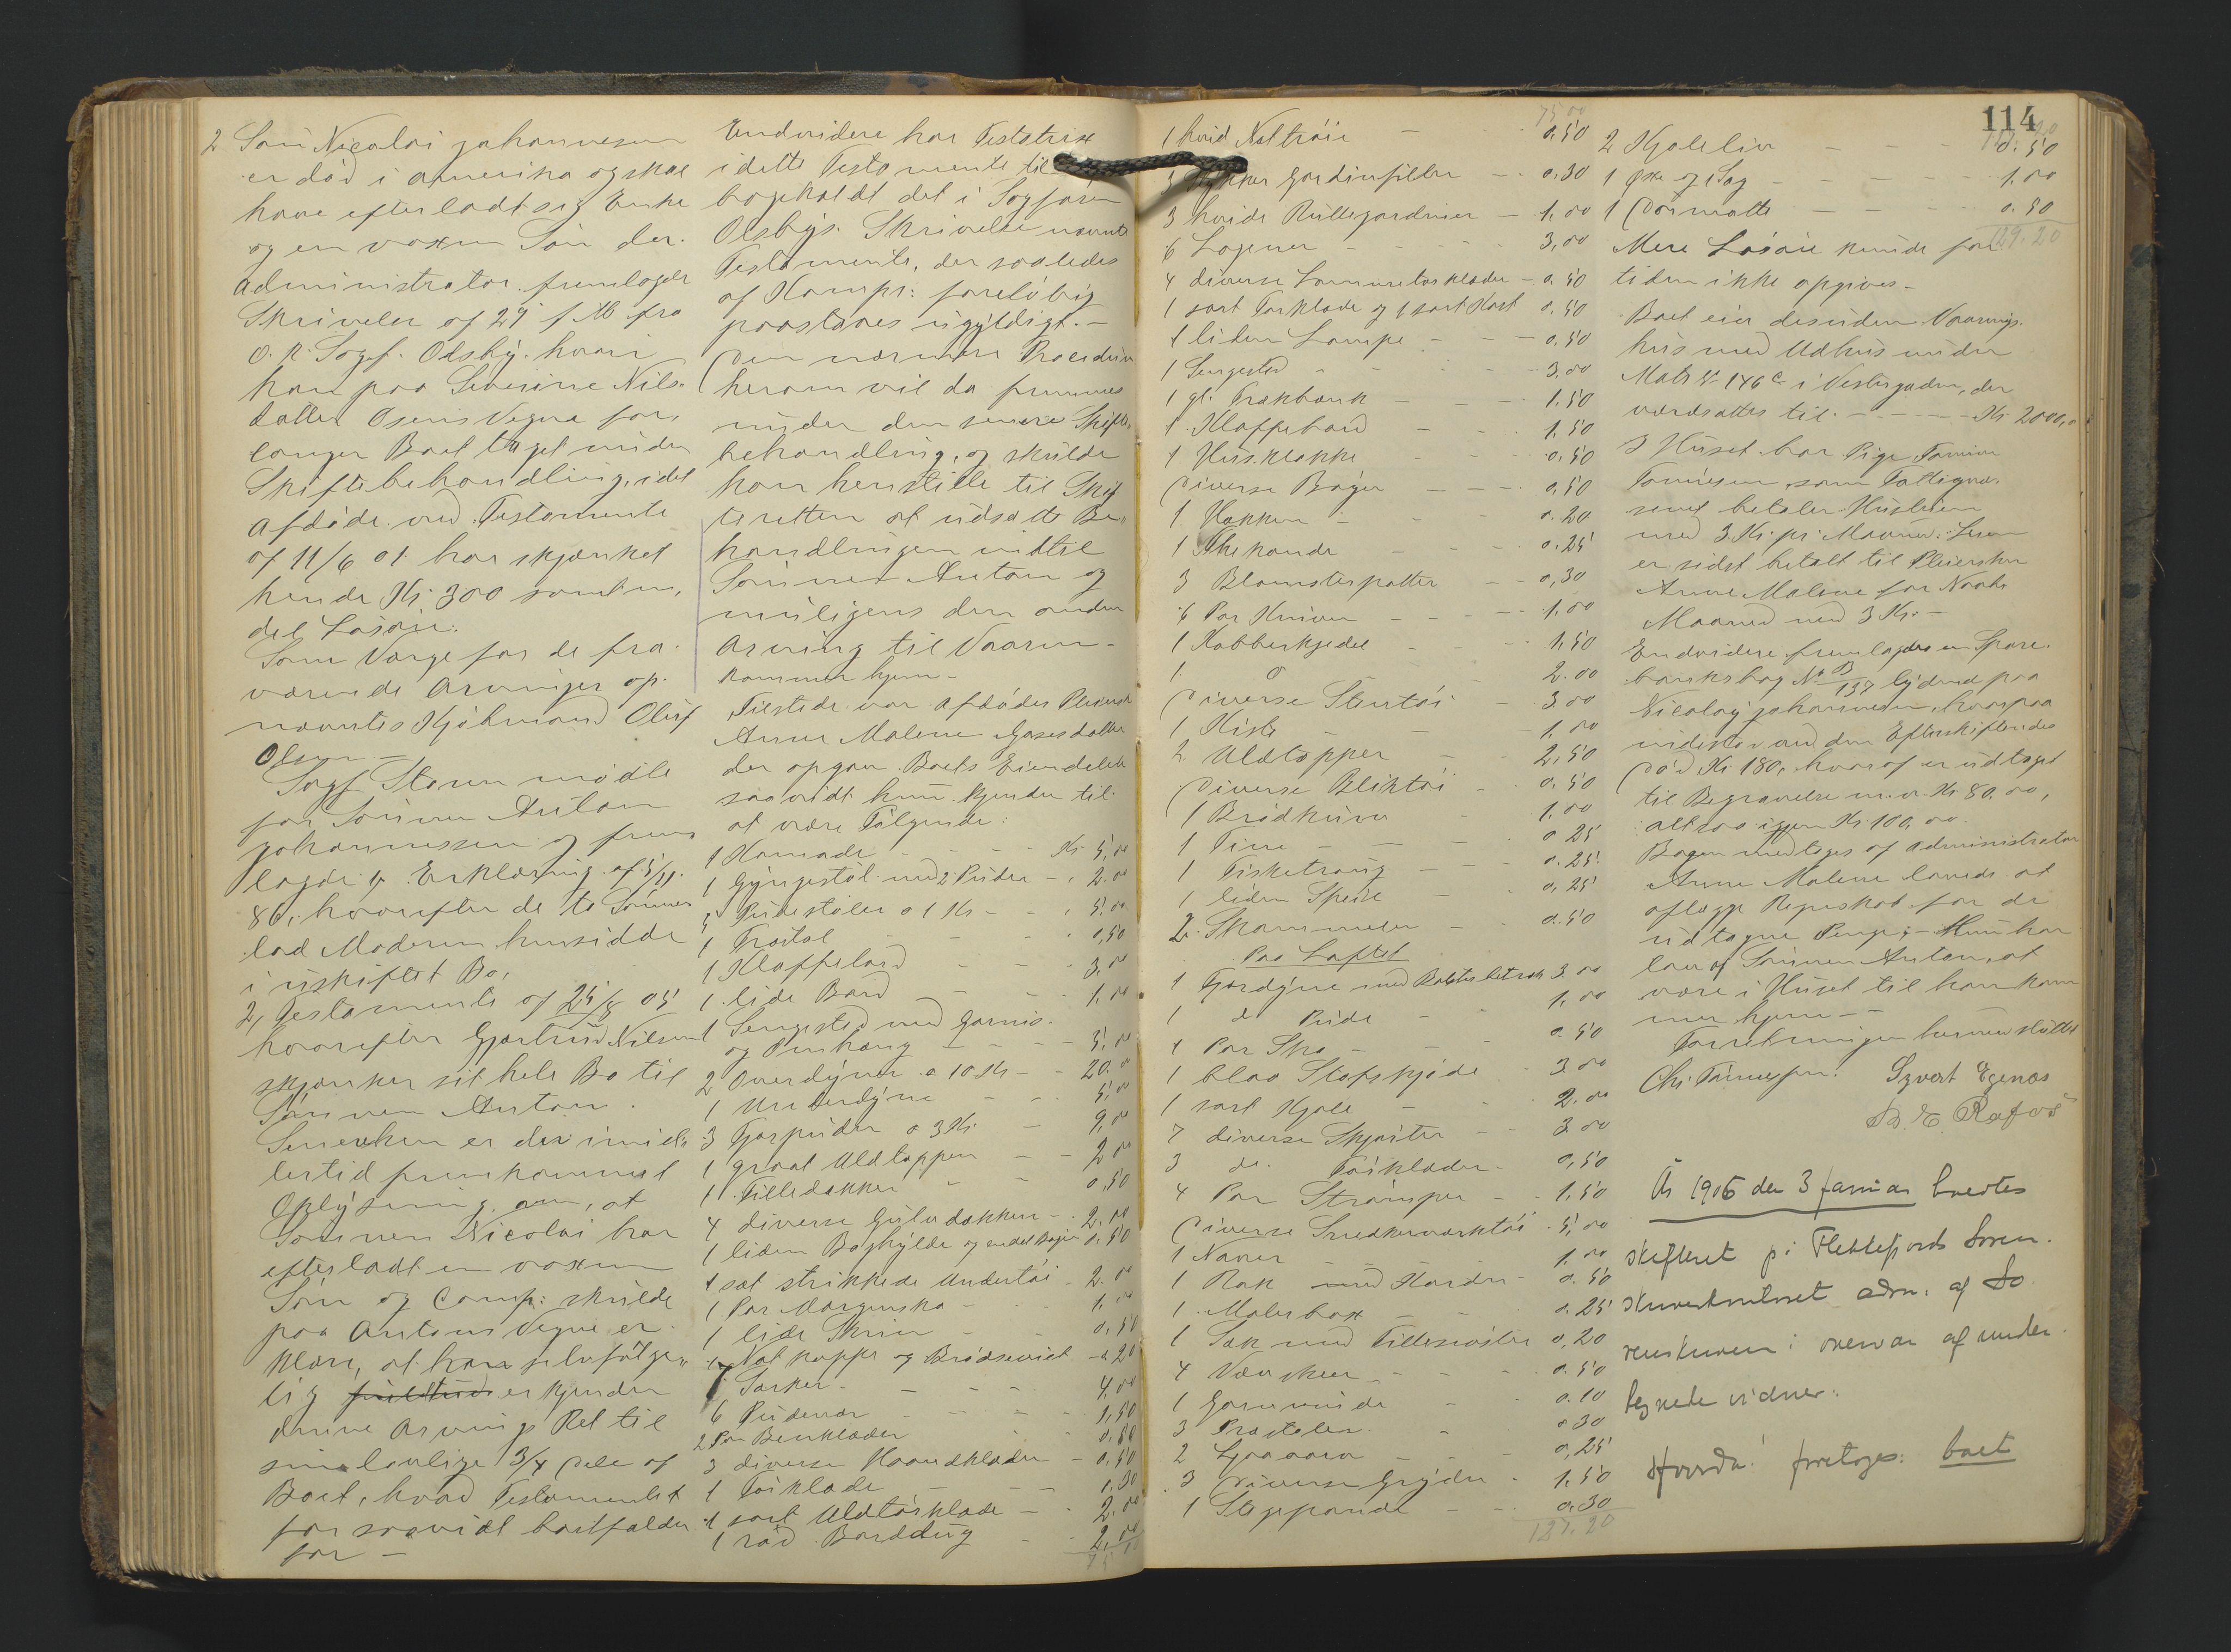 2 Søn Nicolai Johannesen
er död i Amerika og skal
have efterladt sig Enke
og en voxen Søn der.
Administrator fremlagde
Skrivelse af 29 f. M. fra
O. R. Sagf. Olsby, hvori
han paa Severine Nils-
datter Osens Vegne for-
langer Boet taget under
Skiftebehandling, idet
Afdöde ved Testamente
af 11/6 01 har skjænket
hende Kr 300 samt en
del Løsøre.
Som Værge for de fra-
værende Arvinger op-
nævntes Kjøbmand Oluf
Olsen –
Sagf. Steren mødte
for Sønnen Anton
Johannessen og frem-
lagde 1, Erklæring af 5/11
86, hvorefter de to Sønner
lod Moderen hensidde
i uskiftet Bo,
2, Testamente af 25/8 05
hvorefter Gjertrud Nilsen
skjænker sit hele Bo til
Sønnen Anton.
Senerehen er der imid-
lertid fremkommet
Oplysning om, at
Sønnen Nicolai har
efterladt en voxen
Søn og Comp: skulde
paa Antons Vegne er-
klære, at han selvfølge-
lig erkjender
denne Arvings Ret til
sin lovlige 3/4 Dele af
Boet, hvad Testamentet
for saavidt bortfalder
for –
Endvidere har Testatrix
i dette Testamente til-
bagekaldt det i Sagfører
Olsbys Skrivelse nævnte
Testamente, der saaledes
af Komp: foreløbig
paastaaes ugyldigt. –
Den nærmere Procedure
herom vil da fremmes
under den senere Skifte-
behandling, og skulde
han henstille til Skif-
teretten at udsætte Be-
handlingen indtil
Sønnen Anton og
muligens den anden
Arving til Vaaren
kommer hjem –
Tilstede var Afdødes Pleierske
Anne Malene Gasesdatter
der opgav Boets Eiendele
saavidt hun kjender til
at være Følgende:
1 Komode – – – Kr 5,00
1 Gyngestol med 2 Puder – 2.00
5 Pindestoler a 1 Kr – – 5,00
1 Træstol – – 0,50
1 Klaffebord – – 3,00
1 lide Bord – – 1,00
1 Sengested med Garnis-
og Omhæng – – – 5,00
2 Overdyner a 10 Kr – – 20.00
1 Underdyne – – 5,00
3 Fjærpuder a 3 Kr – 9,00
1 graat Uldtæppen – – 2 00
1 Filledækken – – 0,50
4 diverse Gulvdækken – 2.00
1 liden Boghylde og endel Bøger 0.50
1 sæt strikkede Undertøi – 2.00
1 Par Morgensko – 1,00
1 lide Skrin – 0,50
1 Nat kappe og Brødserviet – 0 20
7 Særker – – – 4,00
6 Pudevar – – 1,50
2 Par Benklæder 0,50
3 diverse Haandklæder – 0,50
1 Tørklæde – – 1,30
1 sort Uldtørklæde – 2.00
1 rød Borddug – 2,00
75 00
114
75 00
1 hvid Nattrøie – 0.50
Stykker Gardinfiller – 0.30
3 hvide Rullegardiner – 1,00
6 Lagener – – – 3,00
4 diverse Lommetørklæder – 0.50
1 sort Forklæde og 1 sort Kort 0.50
1 liden Lampe – – – 0.50
1 Sengested – – – 3,00
1 gl. Trækbænk – – – 1.50
1 Klaffebord – – 1.50
1 Hus.klokke – – 0.50
Diverse Bøger – – – 0,50
1 Hakken – – 0.20
1 Thekande – – – 0.25
3 Blomsterpotter – – 0,30
6 Par Kniver – – – 1.00
1 Kobberkjedel – – 1.50
1. d – 2.00
Diverse Stentøi – 3 00
1 Kiste – – 1.00
2 Uldtepper – – 2.50
Diverse Bliktøi – 0.50
1 Brødkurv – – 1,00
1 Tine – – 0 25
1 Fisketraug – – 0.25
1 liden Speil – – 0.25
2 Skammeler – – 0.50
Paa Loftet
1 Fjærdyne med Bolstertetræk 3.00
1 do Pude – – 1,00
1 Par Sko – – 0 50
1 blaa Stofskjøde – 3 00
1 sort Kjole – – 2.00
7 diverse Skjørter – – 3 00
3 do. Tørklæder – 0,50
4 Par Strømper – – 1.50
Diverse Snedkerværktøi 5,00
1 Naver – 1.00
1 Rok med Karder – 0.50
1 Malerbox – – 0.25
1 Sæk med Filleskrøster 0,20
4 Vævskeer – – 0.50
1 Garnvinde – 0.10
3 Præsteler. – 0 30
2 Ljaaorv – – 0,25
3 Diverse Gryder – 1.50
1 Stegepande – – 0.30
127.20
2 Kjoleliv – – – 0.50
1 Øxe og 1 Sag – – – 1.00
1 Dørmatte – – – 0.50
129.20
Mere Løsøre kunde for
tiden ikke opgives –
Boet eier desuden Vaanings-
hus med Udhus under
Matr № 146 c i Vestergaden, der
værdsattes til – – – Kr. 2000,00
I Huset bor Pige Tomine
Tønnesen, som Fattigvæ-
senet betaler Husleien
med 3 Kr. pr. Maaned. Leien
er sidst betalt til Pleiersken
Anne Malene for Novbr
Maaned med 3 Kr. –
Endvidere fremlagdes en Spare-
banksbog № B/137 lydende paa
Nicolay Johannesen, hvorpaa
indestod ved den Efterskiftendes
Død Kr 180, hvoraf er udtaget
til Begravelse m.v. Kr 80,00,
altsaa igjen Kr 100,00.
Bogen medtoges af Administrator
Anne Malene lovede at
aflægge Regnskab for de
udtagne Penge; – Hun har
lov af Sønnen Anton, at
være i Huset til han kom-
mer hjem – –
Forretningen hermed sluttet
Chr. Tønnessen. Syvert Egenæs
B. E. Rafos
År 1906 den 3 januar holdtes
skifteret på Flekkefjords Soren-
skriverkontoret adm. af So-
renskriveren i overvær af under-
tegnede vidner:
Hvorda! foretoges: boet